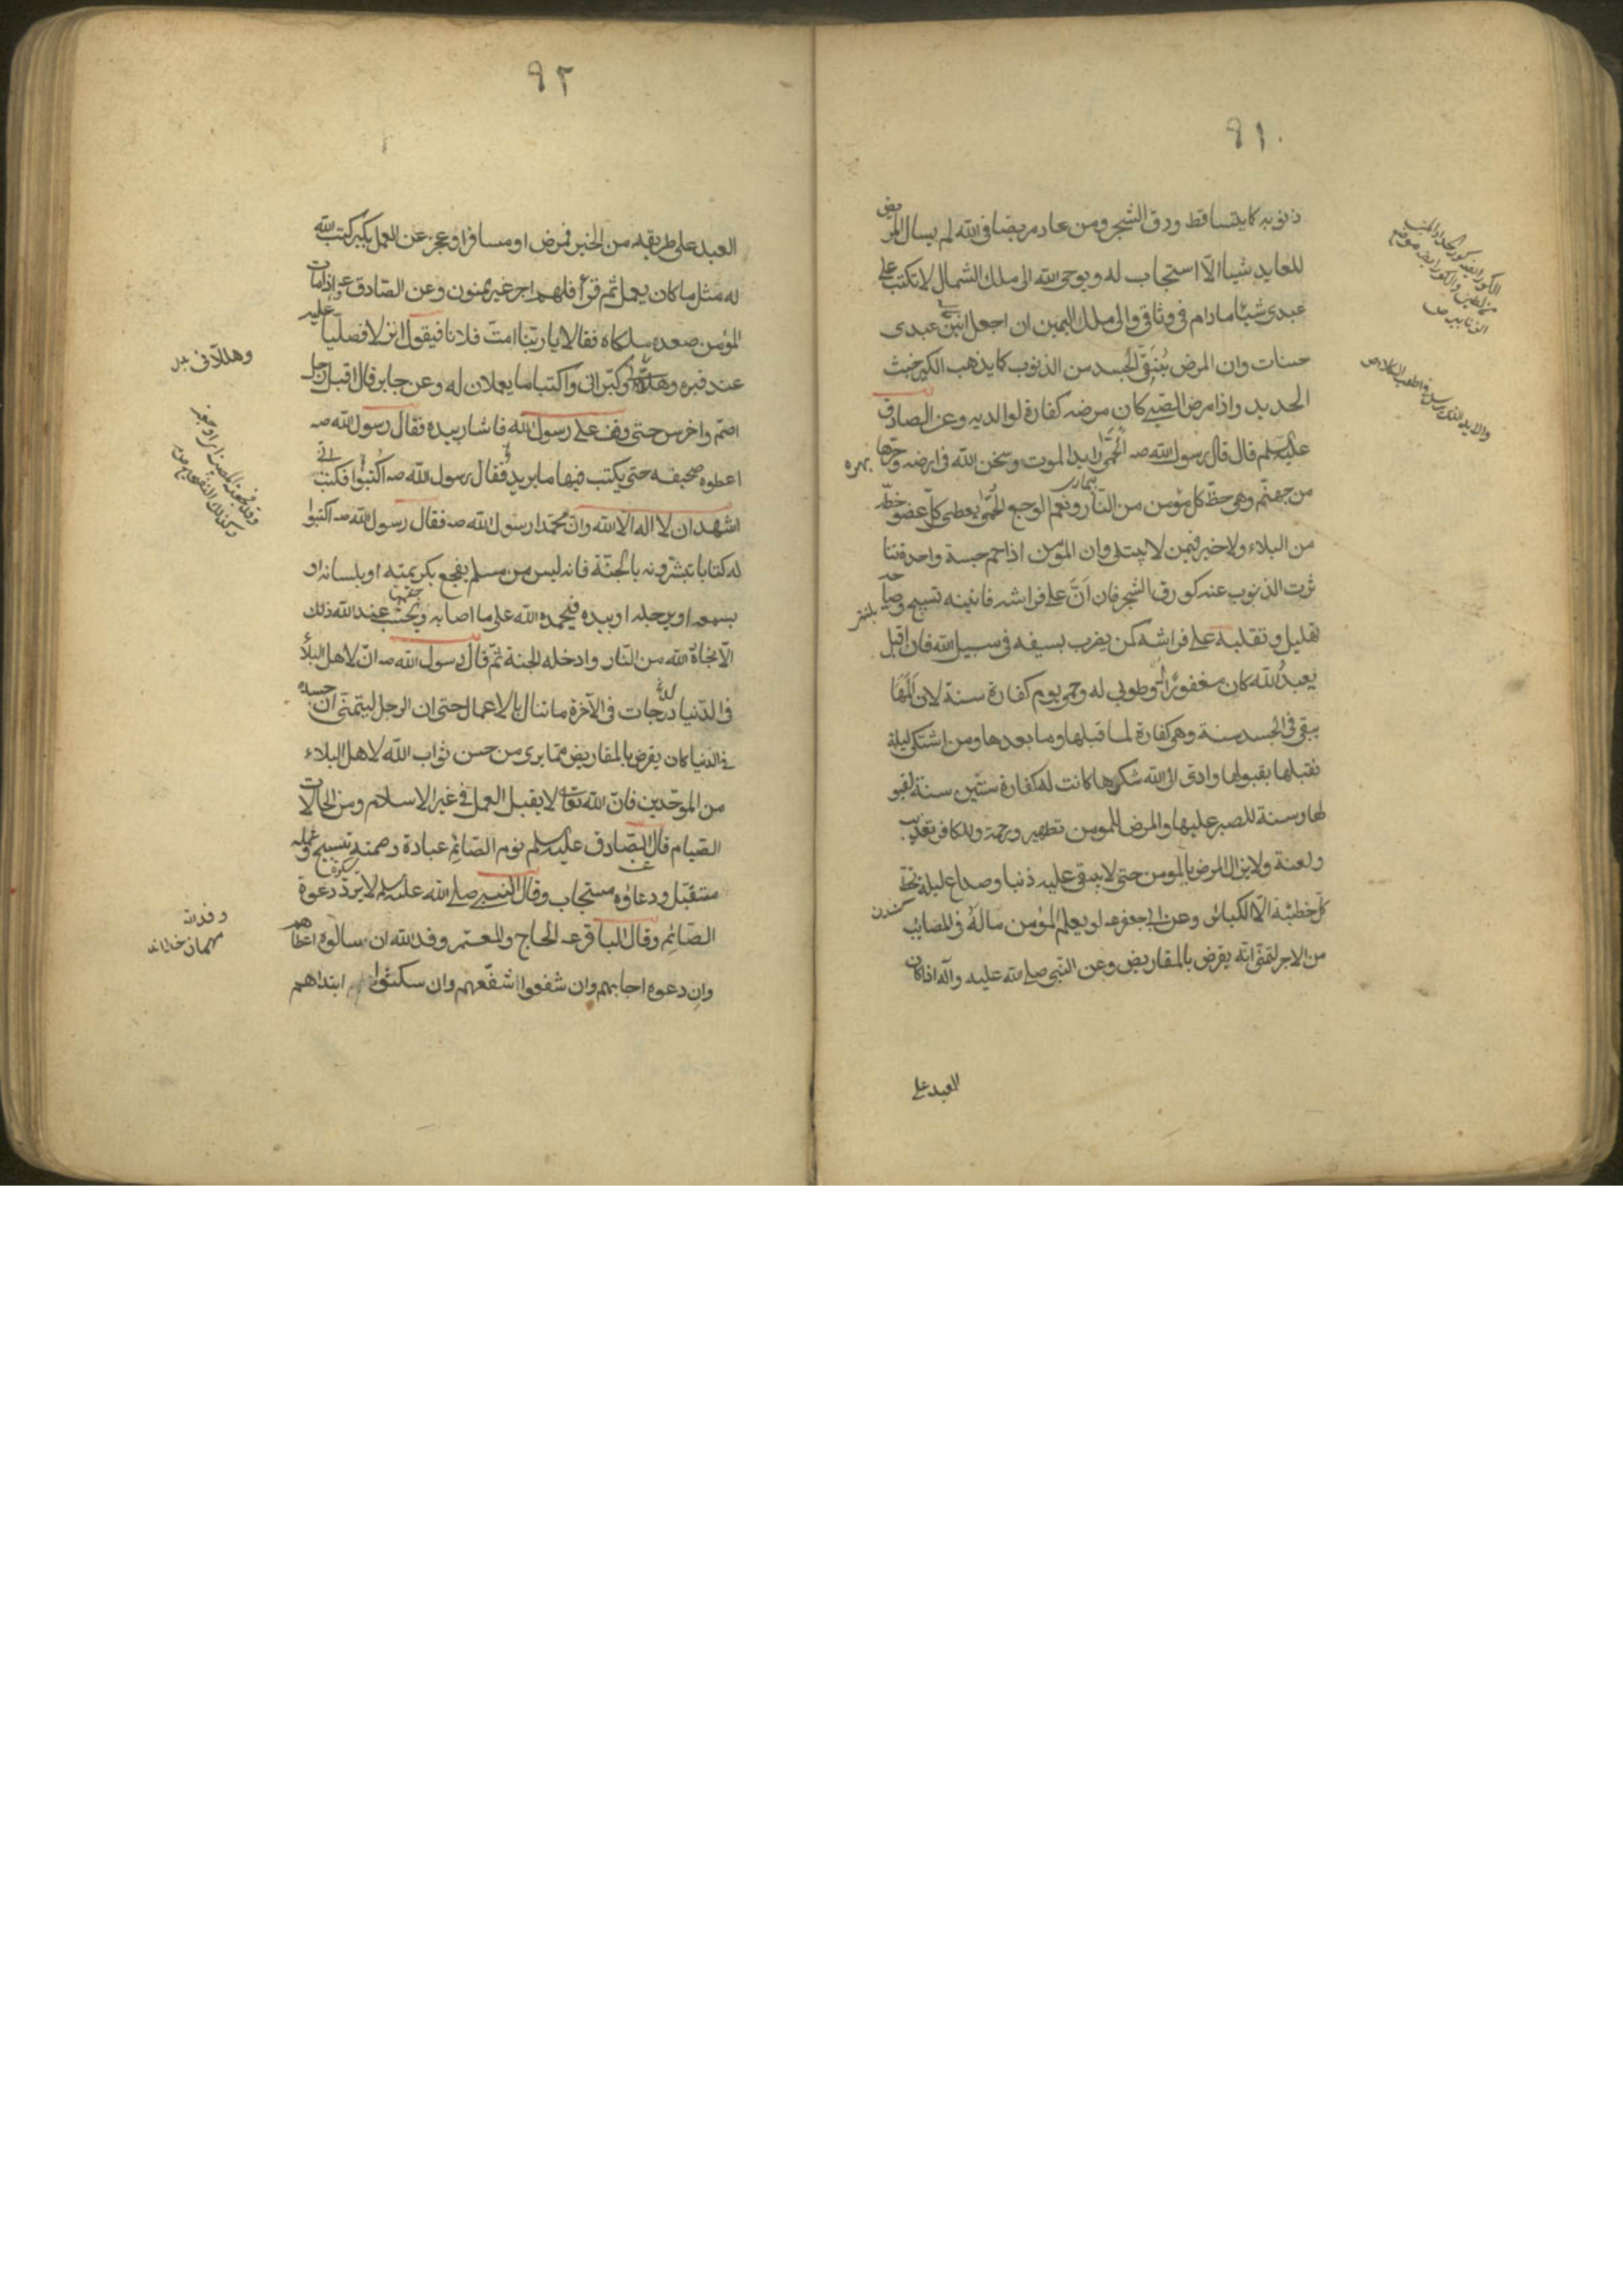 ٩١
ذنوبه كما يتساقط ورق الشجر ومن عاد مريضا فى الله لم يسال المريض
للعايد شيا الّا استجاب له ويوحى الله الى ملك الشمال لا تكتب على
عبدى شيئا مادام فى وثاقى والى ملك اليمين ان اجعل انين عبدى
حسنات وان المرض يُنَقّى الجسد من الذنوب كما يذهب الكير خبث
الحديد واذا مرض الصّبى كان مرضه كفارة لوالديه وعن الصادق
عليه سلم قال قال رسول الله صه الحُمّى رايد الموت وسجن الله فى ارضه وحرّها
من جهنّم وهى حظّ كل مؤمن من النّار ونعم الوجع الحُمّى يعطى كلّ عضو حظّه
بيمارى
بهره
من البلاء ولا خير فيمن لا يبتلى وان المؤمن اذا حم حمة واحدة تنا
ثرت الذنوب عنه كورق الشجر فان اَنَّ على فراشه فانينه تسبيح وصياحه
تهليل وتقلبه على فراشه كمن يضرب بسيفه فى سبيل الله فان اقبل
يعبد الله كان مغفورًا له وطوبى له وحمى يوم كفارة سنة لان اَلَمَهَا
يبقى فى الجسد سنة وهى كفارة لما قبلها وما بعدها ومن اشتكى ليلة
فقبلها بقبولها وادى الى الله شكرها كانت له كفارة ستّين سنة لقبو
لها وسنة للصبر عليها والمرض للمومن تطهير ورحمة وللكافر تعذيب
ولعنة ولا يزال المرض بالمومن حتى لا يبقى عليه ذنبا وصداع ليلة تحط
كلّ خطيئة الّا الكبائر وعن ابى جعفر عه لو يعلم المؤمن ماله فى المصايب
من الاجر لتمنّى انّه يقرض بالمقاريض وعن النّبى صلى الله عليه وآله اذا كان
العبد على
٩٢
العبد على طريقه من الخير فمرض او مسافرا وعجز عن العمل بكبر كتب الله
له مثل ما كان يعمل ثم قرء فلهم اجر غير ممنون وعن الصّادق عه اذا مات
المؤمن صعد ملكاه فقالا يا ربّنا امتّ فلانا فيقول انزلا فصلّيا عليه
عند قبره وهللانى وكبّرانى واكتبا ما يعملان له وعن جابر قال اقبل رجل
وهللآنى
اصمّ واخرس حتى وقف على رسول الله فاشار بيده فقال رسول الله صه
اعطوه صحيفه حتى يكتب فيها ما يريد فقال رسول الله صه اكتبوا فكتب انى
اشهد ان لا اله الا الله وانّ محمّدا رسول الله صه فقال رسول الله صه اكتبوا
له كتابا تبشرونه بالجنّة فانه ليس من مسلم يفجع بكريمتيه او بلسانه او
بسمعه او برجله او بيده فيحمده الله على ما اصابه ويحتسب عند الله ذلك
الّا نجاه الله من النّار وادخله الجنة ثمّ قال رسول الله صه انّ لاهل البلاء
فى الدّنيا درجات فى الآخرة ما تنال بالاعمال حتى ان الرجل ليتمنّى ان جسده
فى الدنيا كان يقرض بالمقاريض ممّا يرى من حسن ثواب الله لاهل البلاء
من الموحّدين فانّ الله تعالى لا يقبل العمل فى غير الاسلام ومن الحالات
الصّيام قال الصّادق عليه سلم نوم الصّائم عبادة وصمته تسبيح وعمله
متقبّل ودعاؤه مستجاب وقال النبى صلى الله عليه سلم لا يردّ دعوة
الصّائم وقال الباقر عه الحاج والمعتمر وفد الله ان سالوه اعطاهم
وفد الله
وان دعوه اجابهم وان شفعوا شفّعهم وان سكتوا ابتداهم